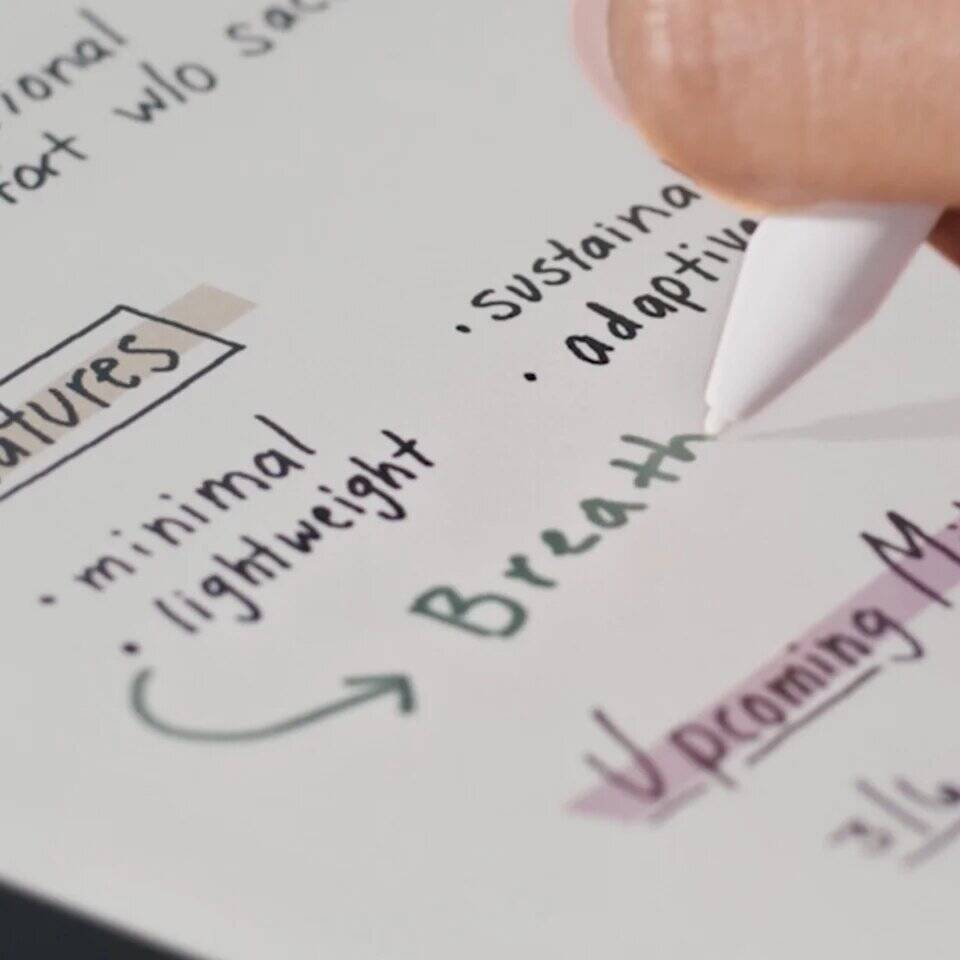 ional
fort w/o sac
atures
• minimal
• lightweight
• sustaina
• adaptive
Breath
Upcoming Mi
3/6